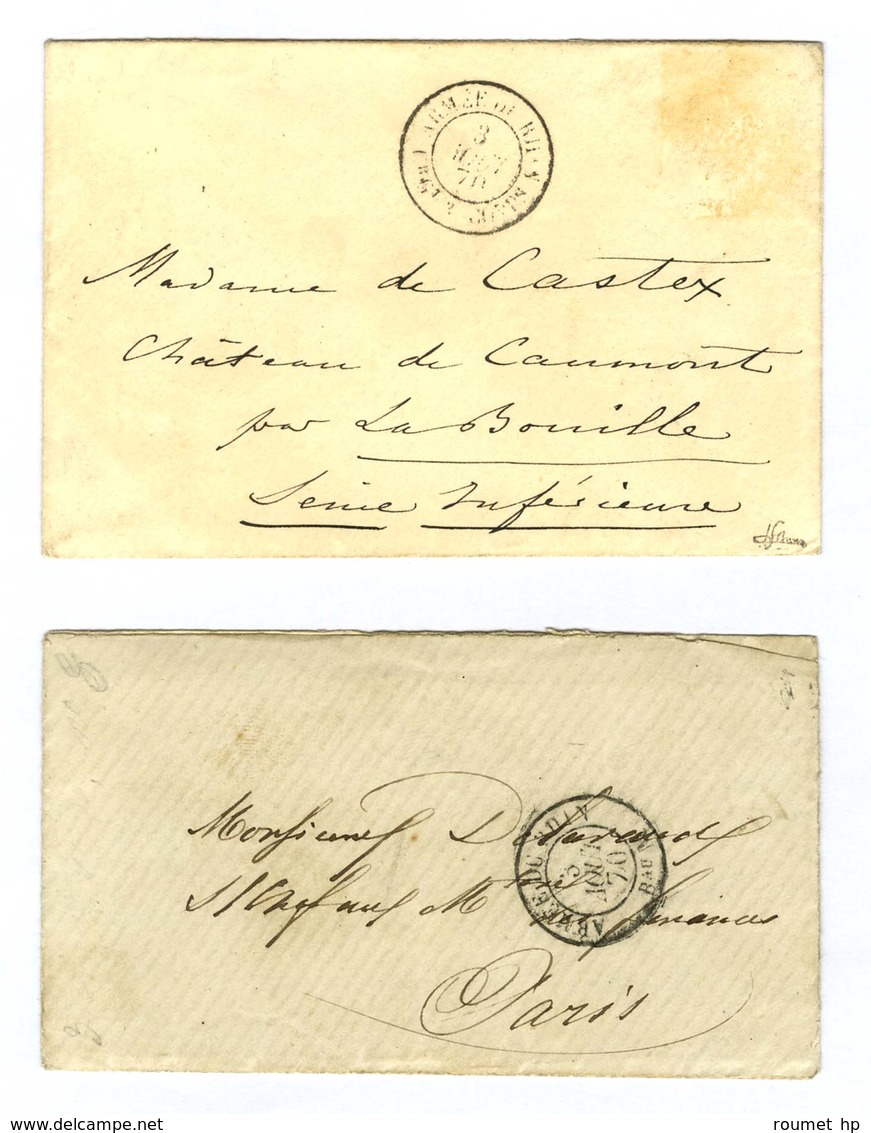 ARMÉE DU RHIN
3
AOUT
70
Madame de Castex
Château de Caumont
par La Bouille
Seine Inférieure
ARMÉE DU RHIN
AOUT
70
Bau
Monsieur
Paris
www.delcampe.net
roumet hp